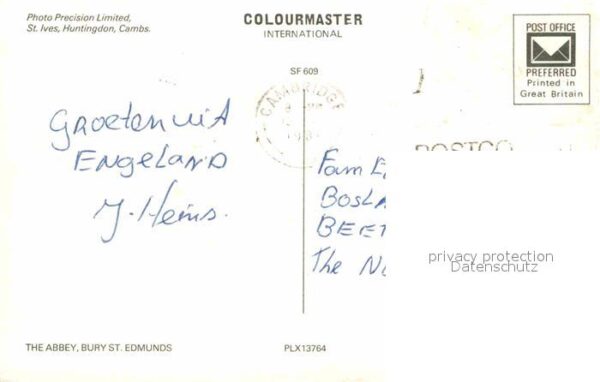 Photo Precision Limited,
St. Ives, Huntingdon, Cambs.
COLOURMASTER
INTERNATIONAL
POST OFFICE
PREFERRED
Printed in
Great Britain
SF 609
CAMBRIDGE
Groeten uit
ENGELAND
J. Heins.
Fam E
BOSLA
BEET
The N
privacy protection
Datenschutz
THE ABBEY, BURY ST. EDMUNDS
PLX13764